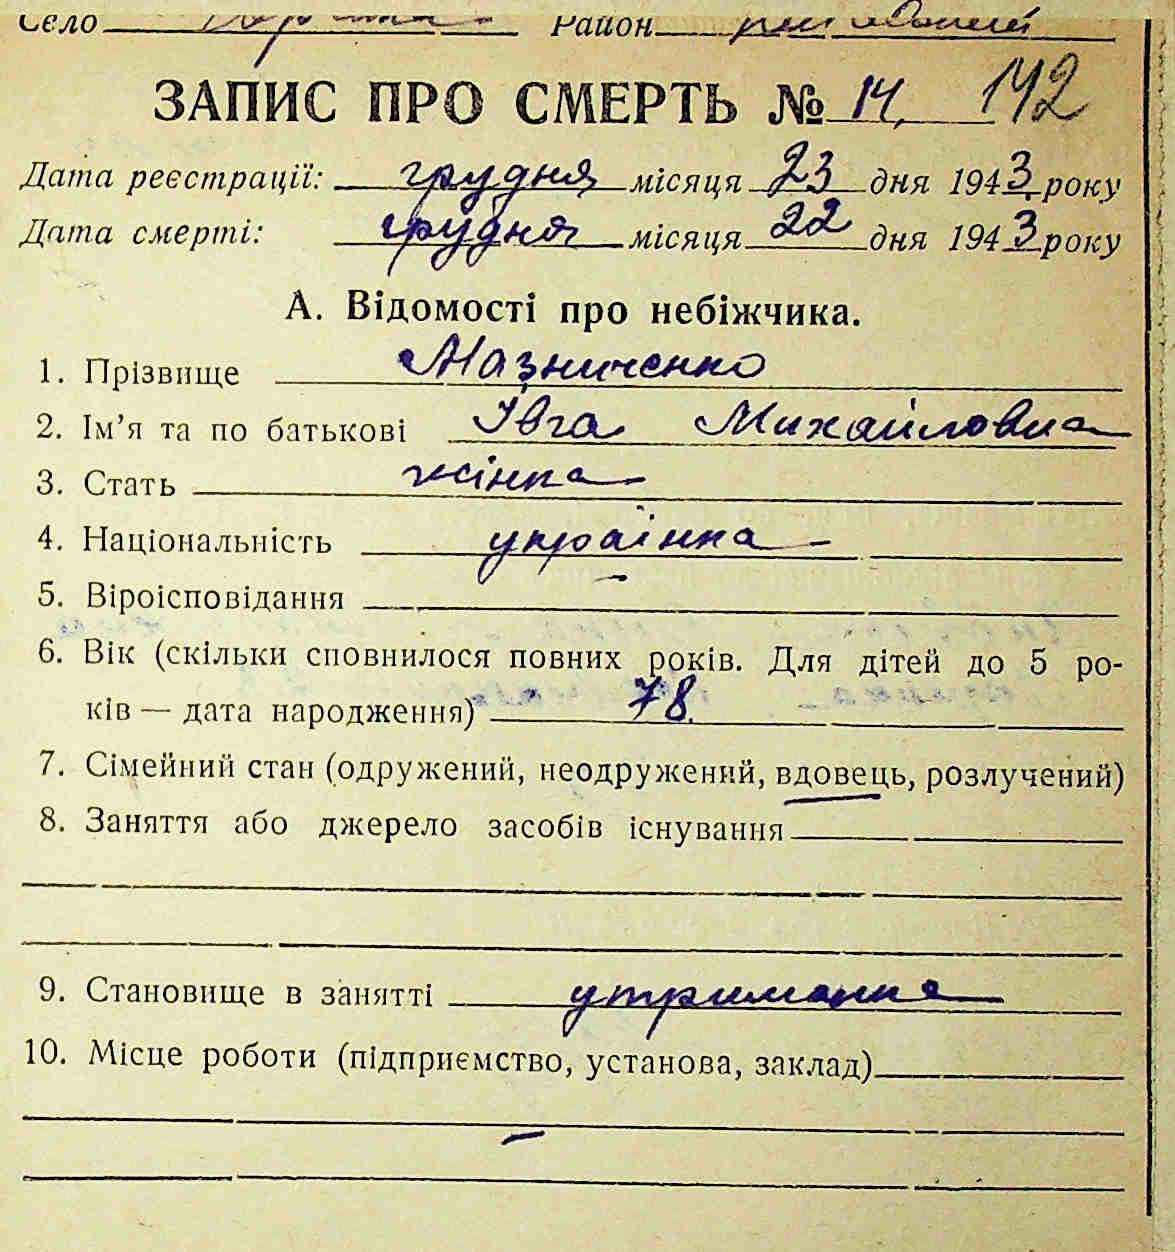 Село Район
ЗАПИС ПРО СМЕРТЬ № 14. 142
Дата реєстрації: грудня місяця 23 дня 1943 року
Дата смерті: грудня місяця 22 дня 1943 року
А. Відомості про небіжчика.
1. Прізвище Мазниченко
2. Ім’я та по батькові Івга Михайловна
3. Стать жінка
4. Національність українка
5. Віроісповідання
6. Вік (скільки сповнилося повних років. Для дітей до 5 ро-
ків — дата народження) 78.
7. Сімейний стан (одружений, неодружений, вдовець, розлучений)
8. Заняття або джерело засобів існування
9. Становище в занятті
10. Місце роботи (підприємство, установа, заклад)
–